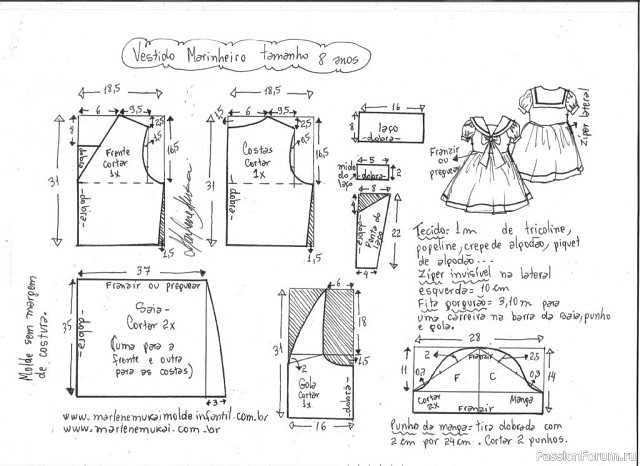 Vestido Marinheiro tamanho 8 anos
18,5
6
9,5
8
2,5
1,5
16,5
31
dobra
Frente
cortar
1x
dobra
1,5
18,5
6
9,5
2,5
0,5
16,5
31
Costas
Cortar
1x
dobra
1,5
16
8
laço
-dobra-
5
miolo
do
laço
dobra
2
8
dobra
Ponta do
laço
22
4
Franzir
ou
preguear
Zíper lateral
Tecido: 1m de tricoline,
popeline, crepe de algodão, piquet
de algodão...
Zíper invisível na lateral
esquerda = 10cm
Fita gorgurão = 3,10m para
uma carreira na barra da saia, punho
e gola.
Molde sem margem
de costura.
37
Franzir ou preguear
35
dobra
Saia-
Cortar 2x
(uma para a
frente e outra
para as costas)
3
6
18
31
1,5
2
Gola
cortar
1x
-dobra-
16
28
2
Franzir
2,5
11
0,7
F
C
0,3
14
Cortar
2x
Manga
Franzir
Punho da manga = tira dobrada com
2cm por 24cm. Cortar 2 punhos.
www.marlenemukaimoldeinfantil.com.br
www.marlenemukai.com.br
PassionForum.ru